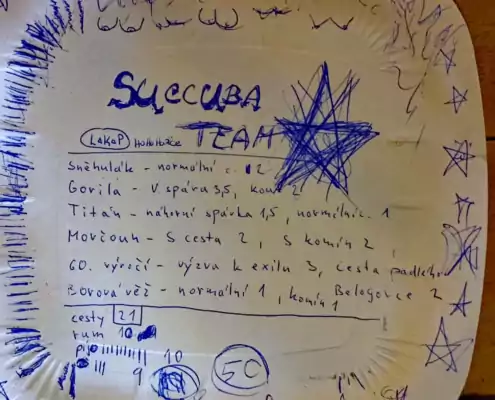 SUCCUBA
TEAM
LaKaP HoHoHáče
Sněhulák - normální c. 2
Gorila - V spára 3,5, komín 2
Titán - náhorní spárka 1,5, normálníc. 1
Movčoun - S cesta 2, S komín 2
60. výročí - výzva k exilu 3, cesta padlých
Borová věž - normální 1, komín 1 Belogorce 2
cesty 21
rum 10
pi
10
9